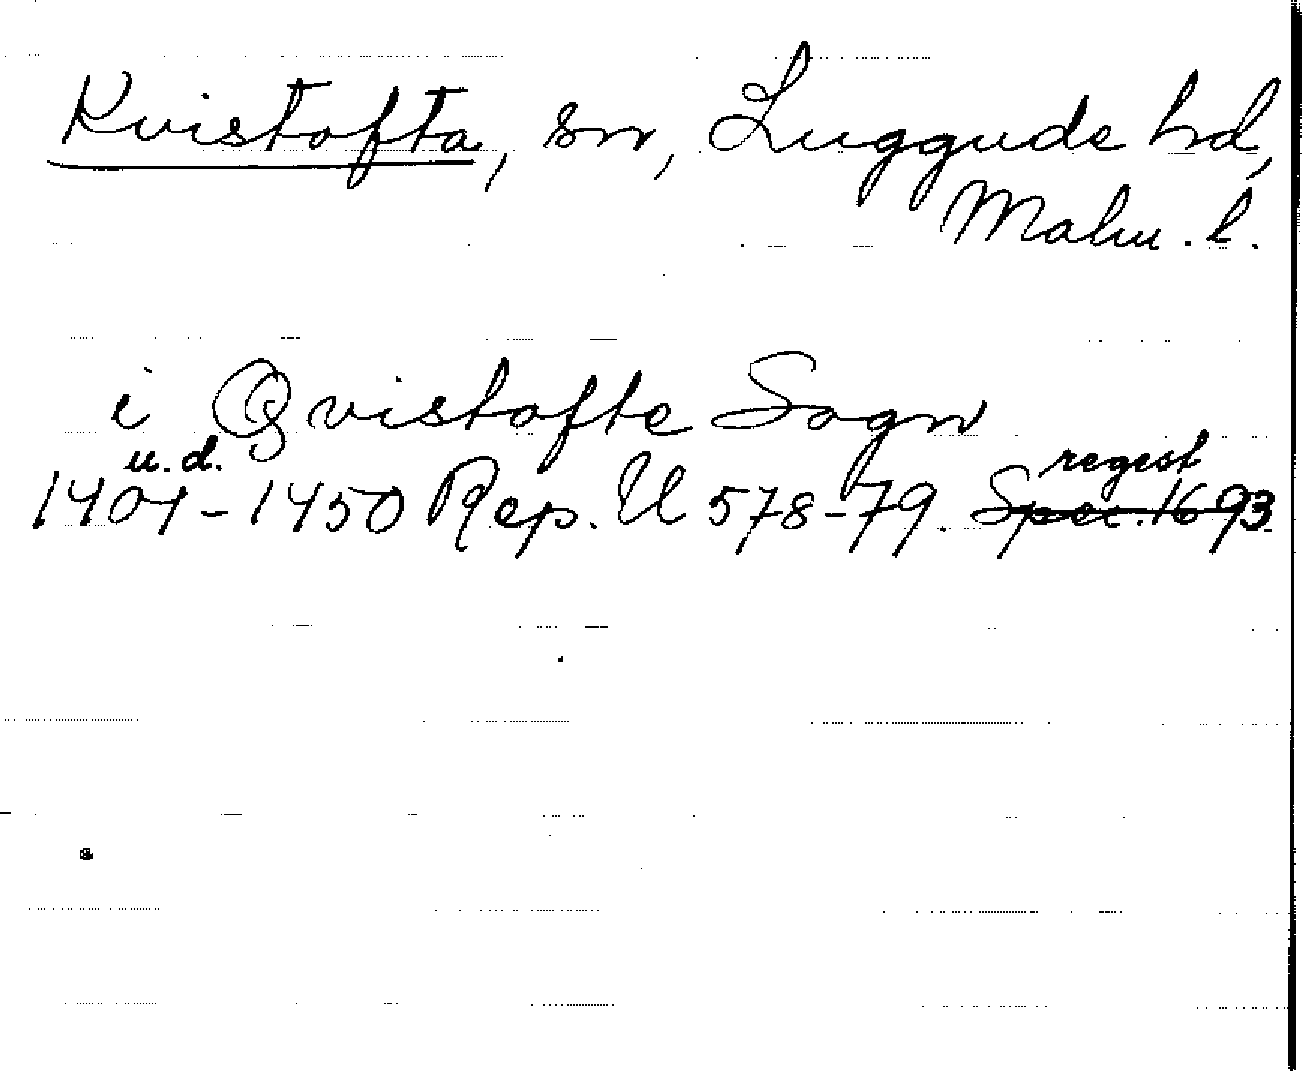 Kvistofta, sn, Luggude hd,
Malm. l.
i Qvistofte Sogn
u.d. regest
1401-1450 Rep. U 578-79. Spec. 1693